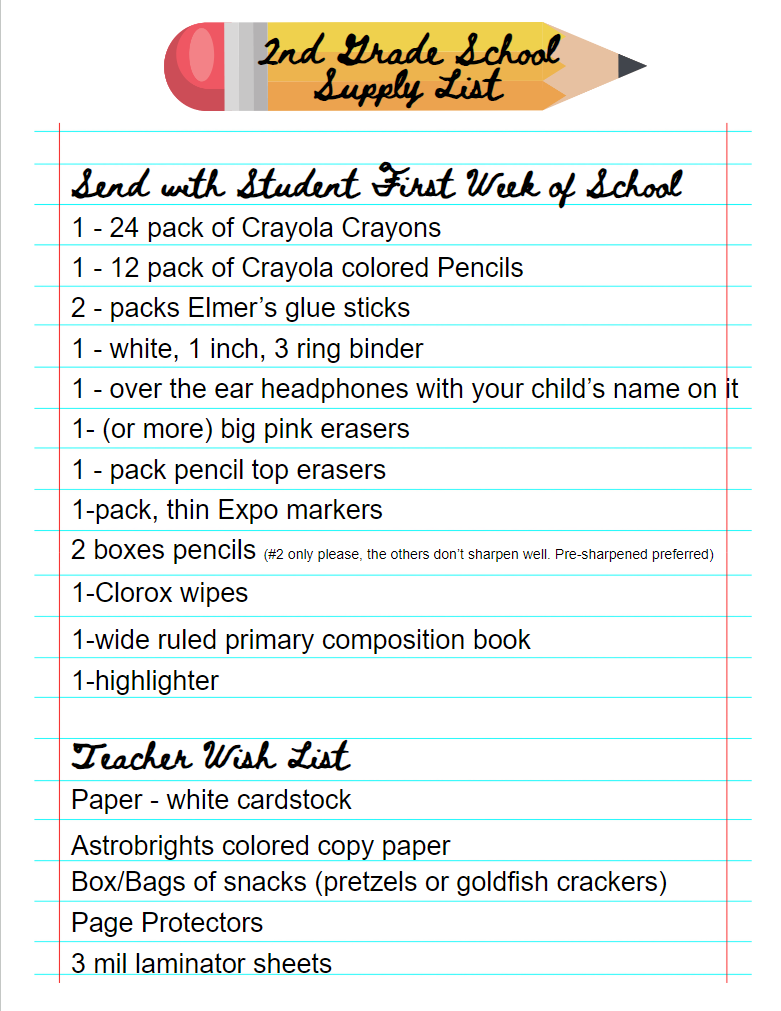 2nd Grade School
Supply List
Send with Student First Week of School
1 - 24 pack of Crayola Crayons
1 - 12 pack of Crayola colored Pencils
2 - packs Elmer’s glue sticks
1 - white, 1 inch, 3 ring binder
1 - over the ear headphones with your child’s name on it
1- (or more) big pink erasers
1 - pack pencil top erasers
1-pack, thin Expo markers
2 boxes pencils (#2 only please, the others don’t sharpen well. Pre-sharpened preferred)
1-Clorox wipes
1-wide ruled primary composition book
1-highlighter
Teacher Wish List
Paper - white cardstock
Astrobrights colored copy paper
Box/Bags of snacks (pretzels or goldfish crackers)
Page Protectors
3 mil laminator sheets